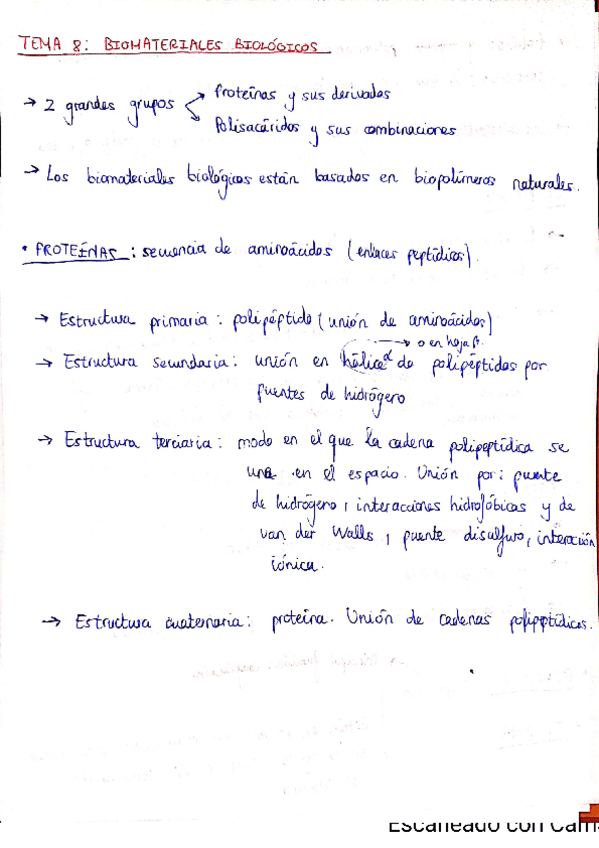 TEMA 8: BIOMATERIALES BIOLÓGICOS
→ 2 grandes grupos
Proteínas y sus derivados
Polisacáridos y sus combinaciones
→ Los biomateriales biológicos están basados en biopolímeros naturales.
• PROTEÍNAS: secuencia de aminoácidos (enlaces peptídicos).
→ Estructura primaria: polipéptido (unión de aminoácidos)
→ o en hoja β.
→ Estructura secundaria: unión en hélice α de polipéptidos por
puentes de hidrógero
→ Estructura terciaria: modo en el que la cadena polipeptídica se
una en el espacio. Unión por: puente
de hidrógeno, interacciones hidrofóbicas y de
van der Walls, puente disulfuro, interacción
iónica.
→ Estructura cuaternaria: proteína. Unión de cadenas polipptídicas.
Escaneado con Cam